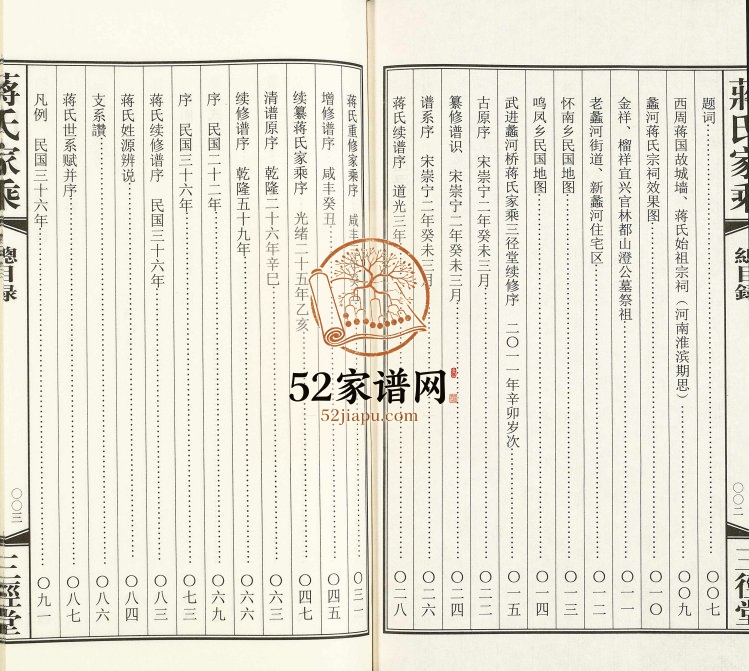 蔣氏家乘
總目録
〇〇二
三徑堂
题词 〇〇七
西周蒋国故城墙、蒋氏始祖宗祠(河南淮滨期思) 〇〇九
蠡河蒋氏宗祠效果图 〇一〇
金祥、榴祥宜兴官林都山澄公墓祭祖 〇一一
老蠡河街道、新蠡河住宅区 〇一二
怀南乡民国地图 〇一三
鸣凤乡民国地图 〇一四
武进蠡河桥蒋氏家乘三径堂续修序 二〇一一年辛卯岁次 〇一五
古原序 宋崇宁二年癸未三月 〇二二
纂修谱识 宋崇宁二年癸未三月 〇二四
谱系序 宋崇宁二年癸未三月 〇二六
蒋氏续谱序 道光三年 〇二八
蒋氏重修家乘序 咸丰 〇三一
增修谱序 咸丰癸丑 〇四五
续纂蒋氏家乘序 光绪二十五年乙亥 〇四七
清谱原序 乾隆二十六年辛巳 〇六六
续修谱序 乾隆五十九年 〇六六
序 民国二十二年 〇六九
序 民国三十六年 〇七三
蒋氏续修谱序 民国三十六年 〇八三
蒋氏姓源辨说 〇八四
支系讚 〇八六
蒋氏世系赋并序 〇八七
凡例 民国三十六年 〇九一
蔣氏家乘
總目録
〇〇三
三徑堂
52家谱网
52jiapu.com